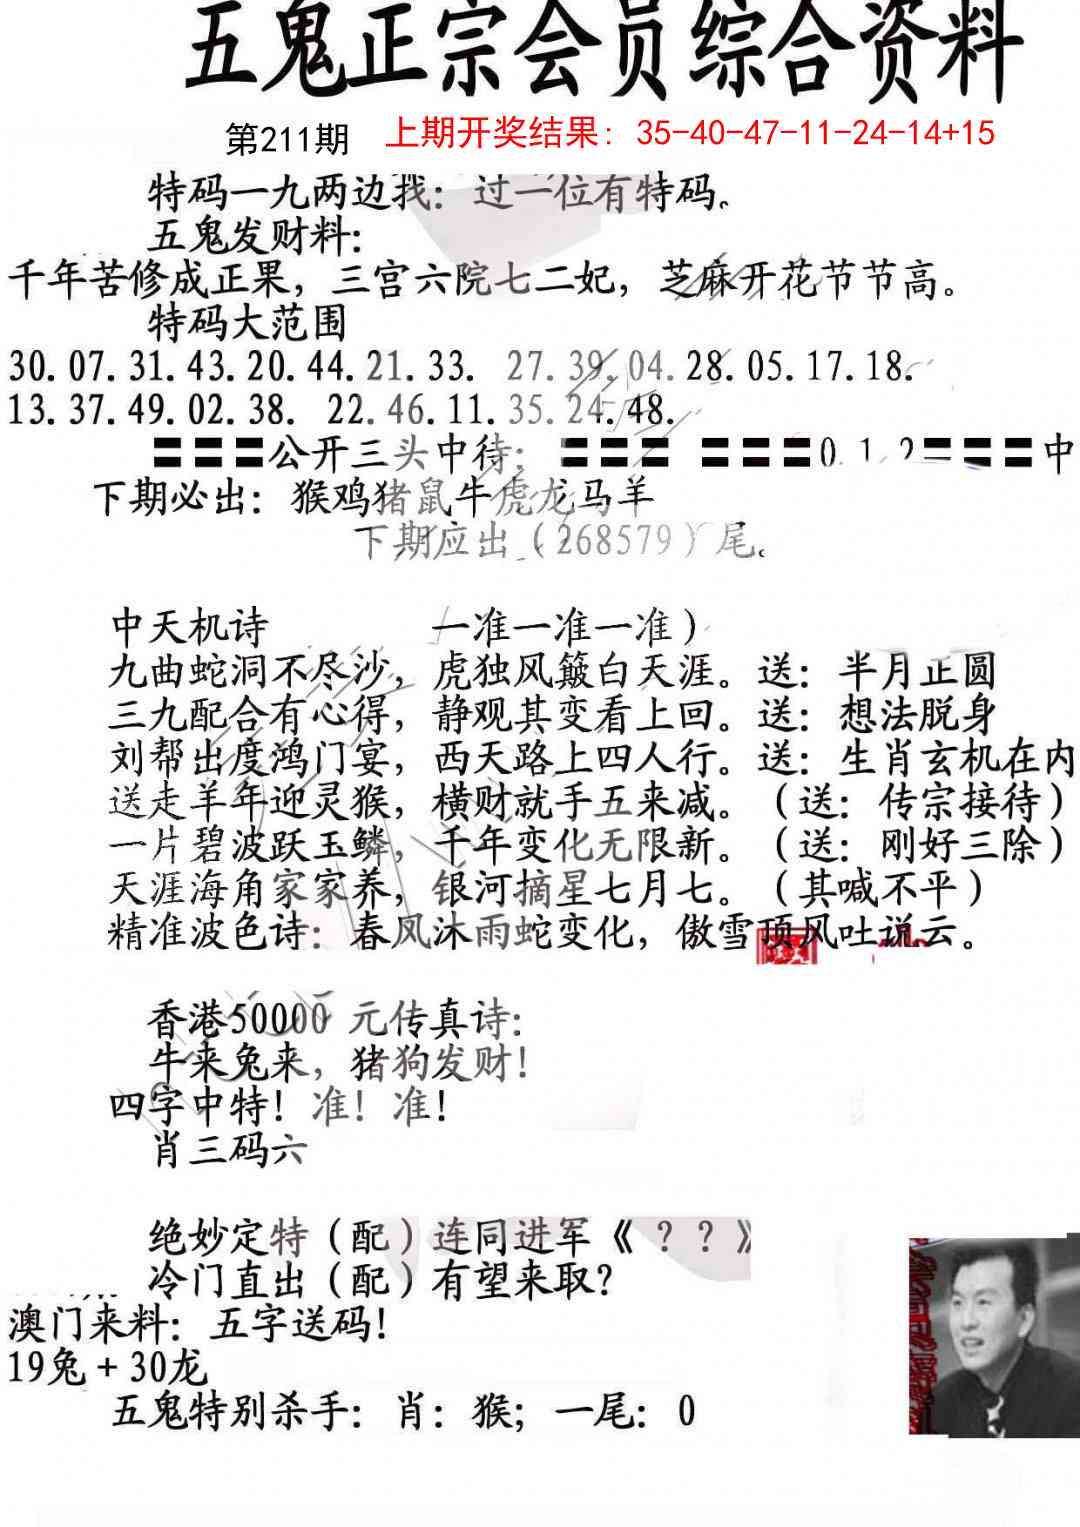 五鬼正宗会员综合资料
第211期 上期开奖结果: 35-40-47-11-24-14+15
特码一九两边找: 过一位有特码。
五鬼发财料:
千年苦修成正果, 三宫六院七二妃, 芝麻开花节节高。
特码大范围
30.07.31.43.20.44.21.33. 27.39.04.28.05.17.18.
13.37.49.02.38. 22.46.11.35.24.48.
〓〓〓公开三头中待: 〓〓〓 〓〓〓0.1.2〓〓〓中
下期必出: 猴鸡猪鼠牛虎龙马羊
下期应出(268579)尾。
中天机诗 一准一准一准)
九曲蛇洞不尽沙, 虎独风簸白天涯。送: 半月正圆
三九配合有心得, 静观其变看上回。送: 想法脱身
刘帮出度鸿门宴, 西天路上四人行。送: 生肖玄机在内
送走羊年迎灵猴, 横财就手五来减。(送: 传宗接待)
一片碧波跃玉鳞, 千年变化无限新。(送: 刚好三除)
天涯海角家家养, 银河摘星七月七。(其喊不平)
精准波色诗: 春风沐雨蛇变化, 傲雪顶风吐说云。
香港50000 元传真诗:
牛来兔来, 猪狗发财!
四字中特! 准! 准!
肖三码六
绝妙定特(配)连同进军《??》
冷门直出(配)有望来取?
澳门来料: 五字送码!
19兔+30龙
五鬼特别杀手: 肖: 猴; 一尾: 0